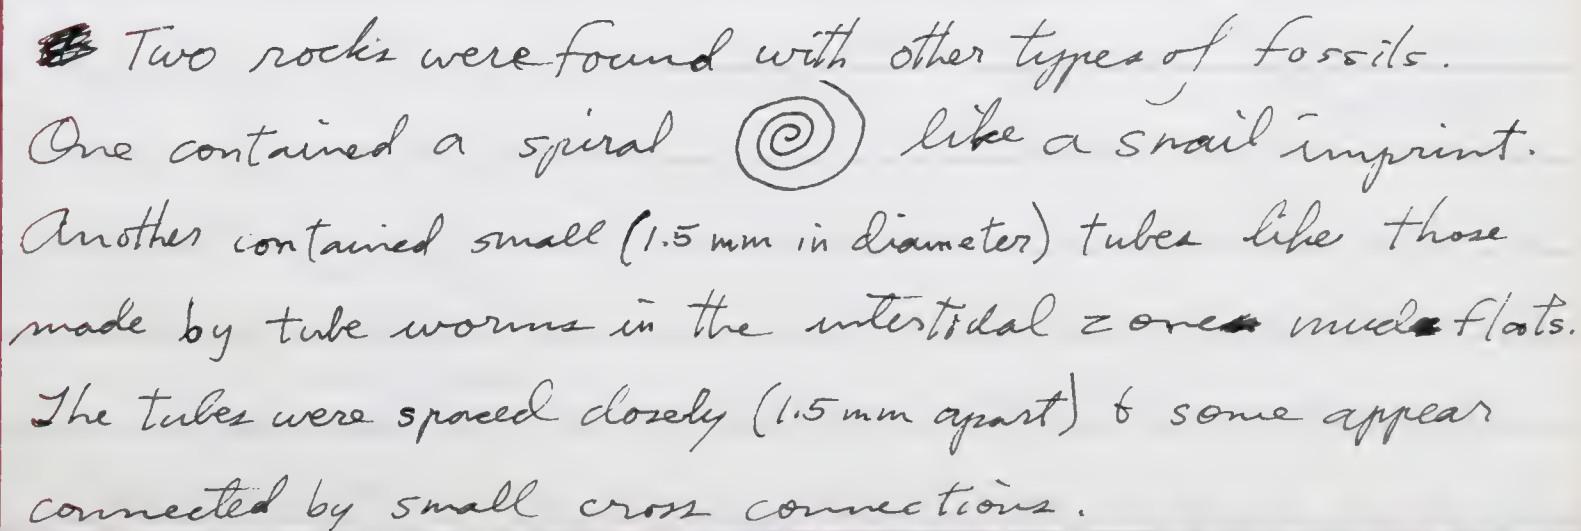 Two rocks were found with other types of fossils.
One contained a spiral like a snail imprint.
Another contained small (1.5 mm in diameter) tubes like those
made by tube worms in the intertidal zone mud flats.
The tubes were spaced closely (1.5 mm apart) & some appear
connected by small cross connections.